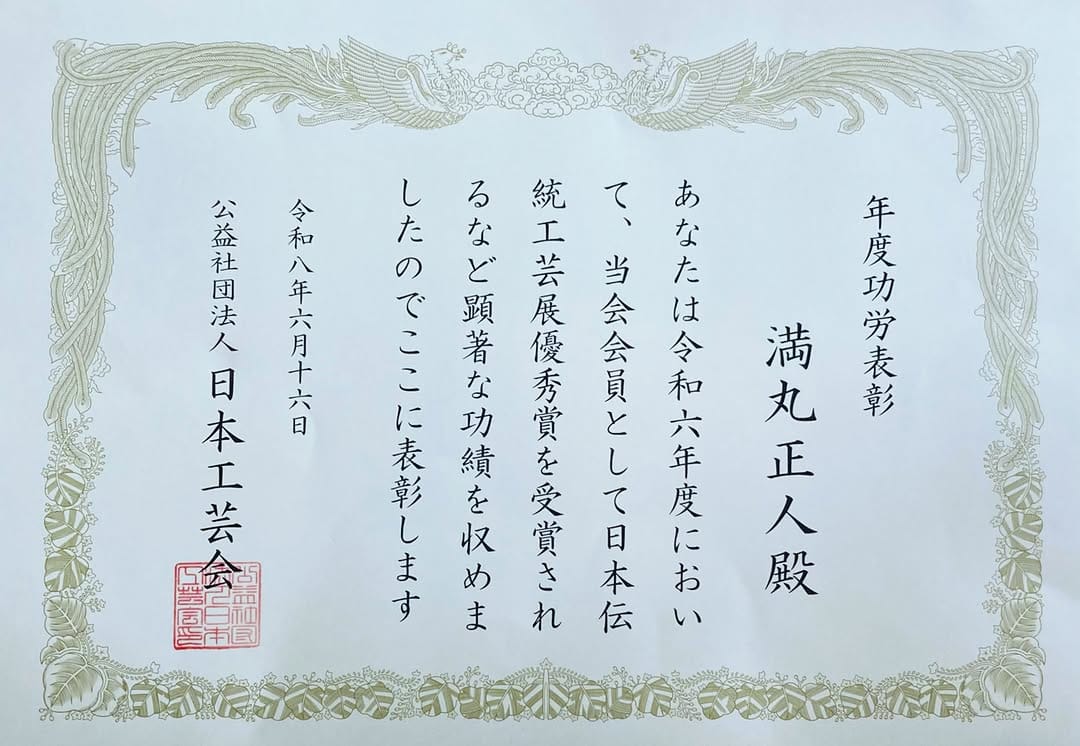 年度功労表彰
満丸正人殿
あなたは令和六年度におい
て、当会会員として日本伝
統工芸展優秀賞を受賞され
るなど顕著な功績を収めま
したのでここに表彰します
令和八年六月十六日
公益社団法人日本工芸会